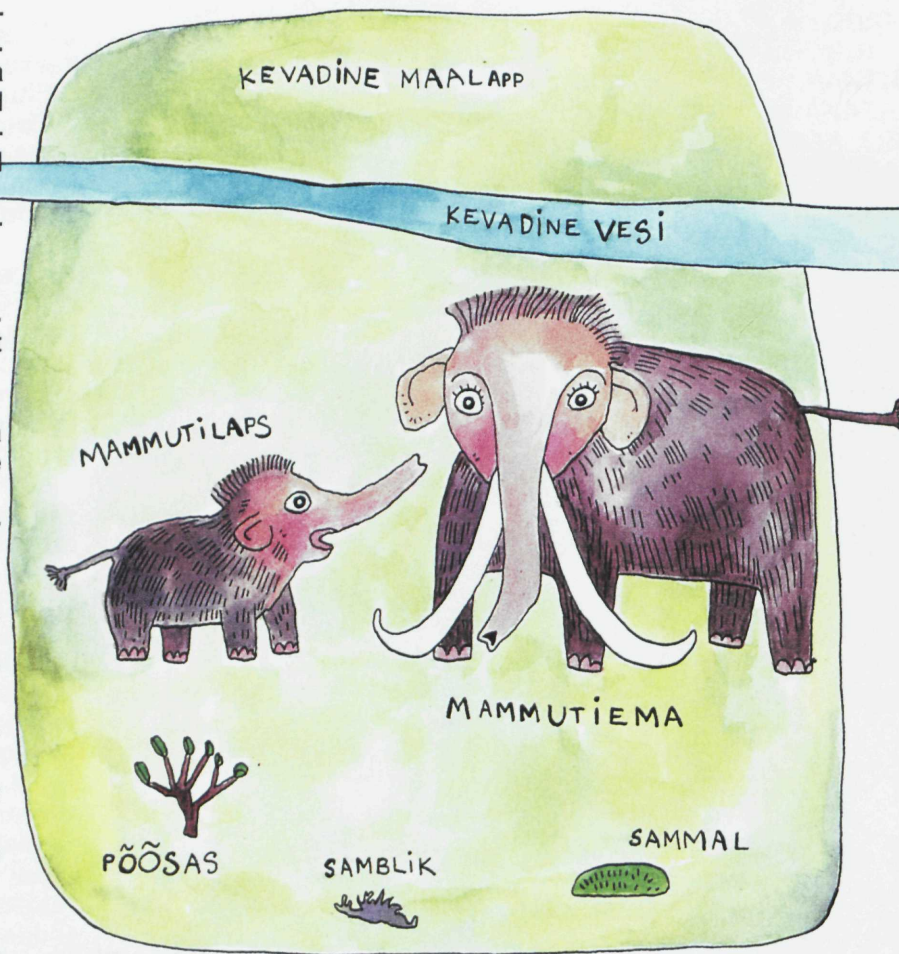 KEVADINE MAALAPP
KEVADINE VESI
MAMMUTILAPS
MAMMUTIEMA
PÕÕSAS
SAMBLIK
SAMMAL